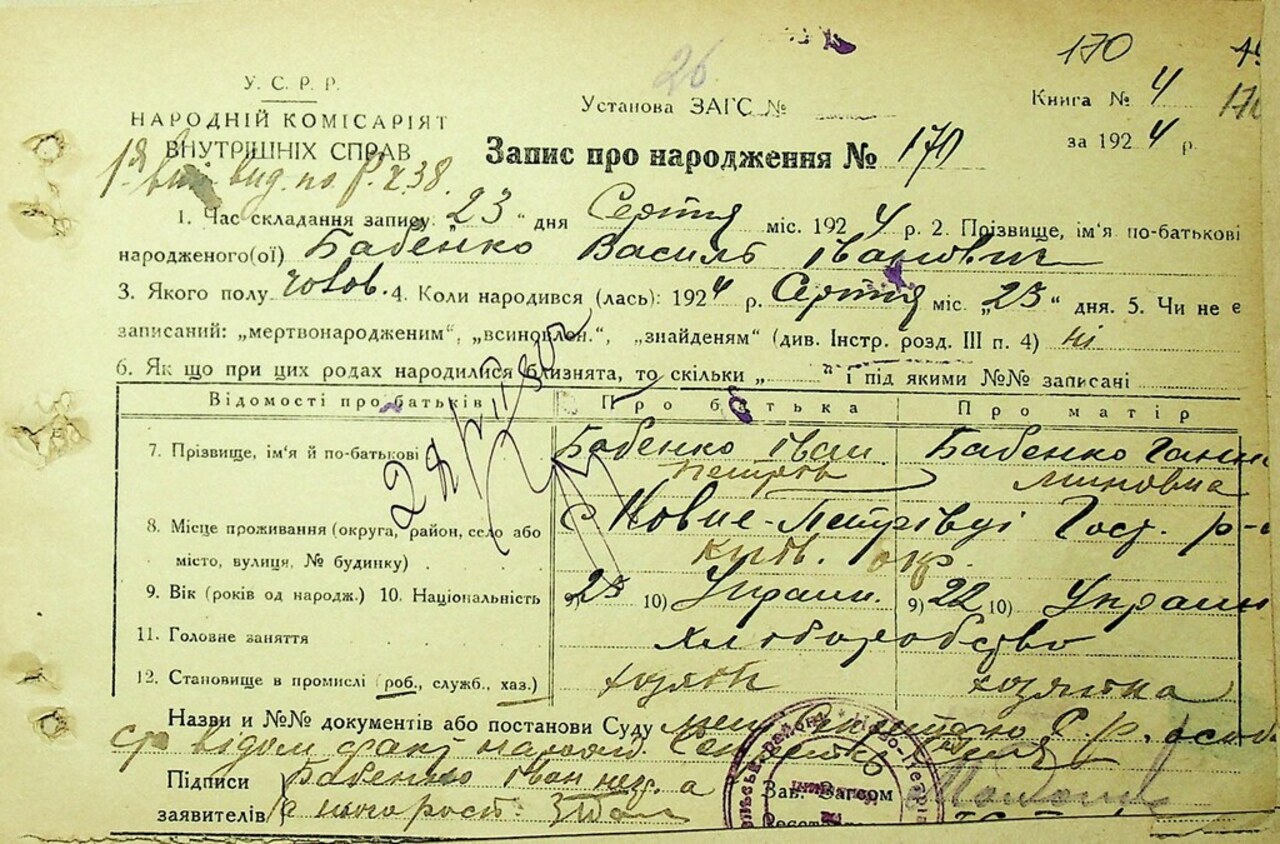 170
26
У. С. Р. Р.
Установа ЗАГС №
Книга № 4
НАРОДНІЙ КОМІСАРІЯТ
ВНУТРІШНІХ СПРАВ
Запис про народження № 170
за 1924 р.
вид. по
1. Час складання запису „23“ дня Серпня міс. 1924 р. 2. Прізвище, ім'я по-батькові
народженого(ої) Бабенко Василь Іванович
3. Якого полу чолов. 4. Коли народився (лась): 1924 р. Серпня міс. „23“ дня. 5. Чи не є
записаний: „мертвонародженим“, „всиновлен.“, „знайденям“ (див. Інстр. розд. III п. 4) ні
6. Як що при цих родах народилися близнята, то скільки „ “ і під якими №№ записані
Відомості про батьків Про батька Про матір
7. Прізвище, ім'я й по-батькові Бабенко Іван Бабенко Ганна
8. Місце проживання (округа, район, село або с Нові-Петрівці Гост. р-
місто, вулиця, № будинку) Київ. окр.
9. Вік (років од народж.) 10. Національність 9) 25 10) Украин. 9) 22 10) Украин
11. Головне заняття хлиборобство
12. Становище в промислі (роб., служб., хаз.) хозяїн хозяйка
Назви и №№ документів або постанови Суду
Підписи Бабенко Іван нез. а
заявителів
Зав. Загсом